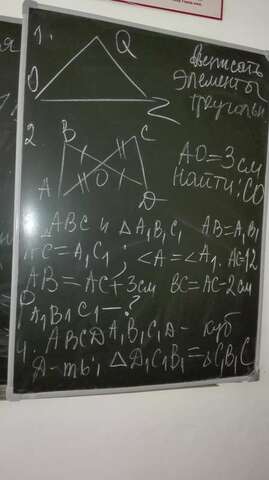 1.
Q
O
Z
Выписать
элементы
треугольн
2
B
C
A
O
D
AO=3см
Найти: CO
△ABC и △A₁B₁C₁ AB=A₁B₁
AC=A₁C₁ ∠A=∠A₁. AC=12
AB=AC+3см BC=AC-2см
A₁B₁C₁—?
4 ABCDA₁B₁C₁D- куб
Д-ть: △D₁C₁B₁=△C₁B₁C